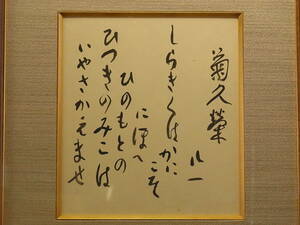 菊久榮
しらきくはかに
こそ
にほへ
ひのもとの
ひつきのみこは
いやさかえませ